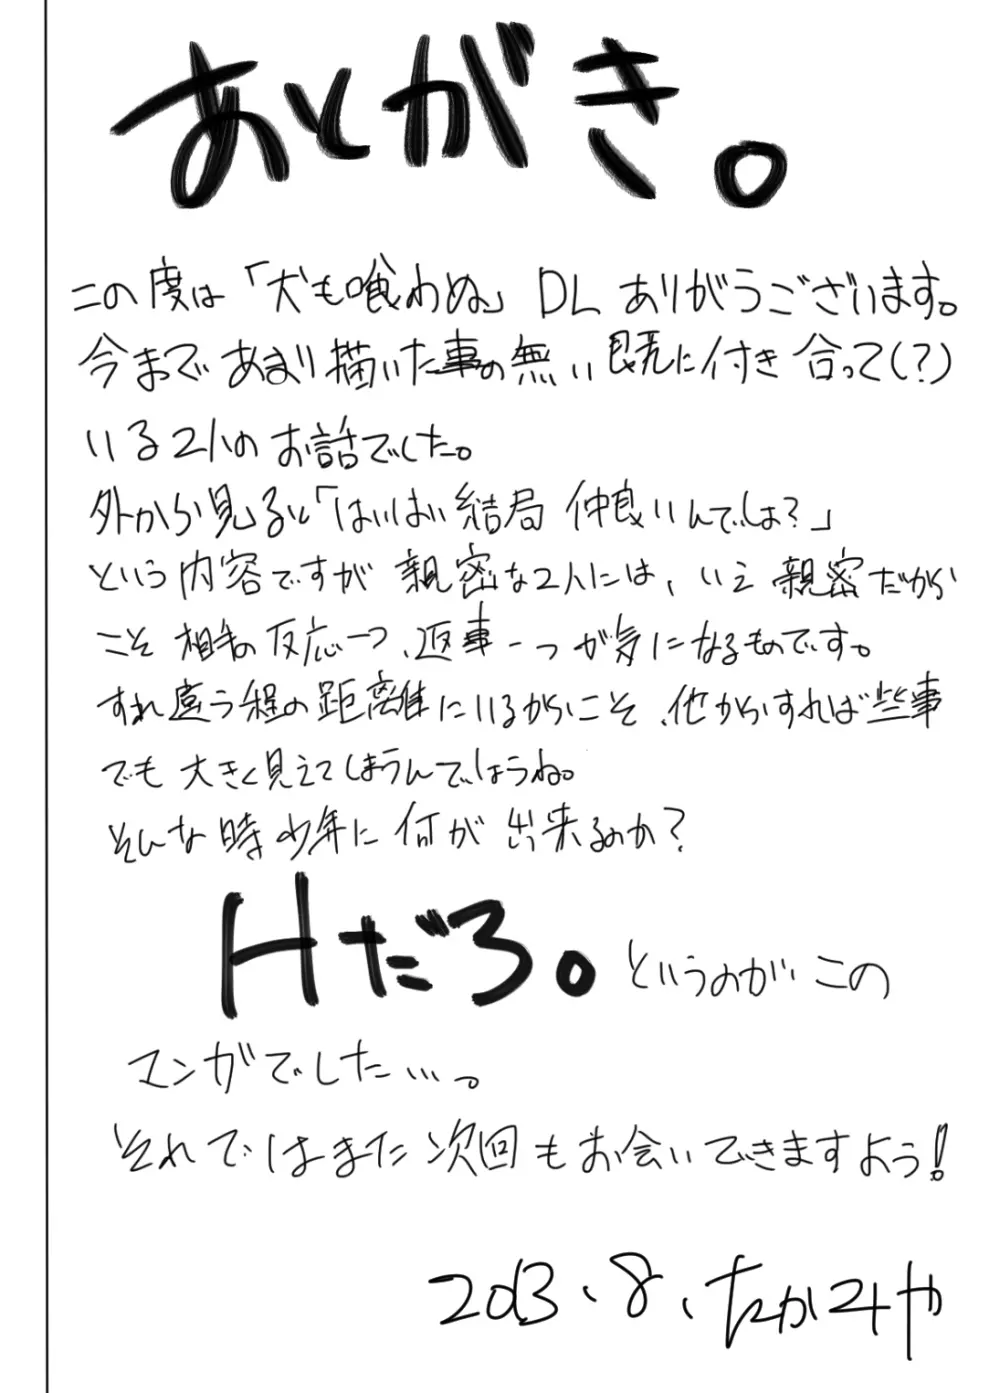 あとがき。
この度は「犬も喰わぬ」DLありがとうございます。
今まであまり描いた事の無い既に付き合って(?)
いる2人のお話でした。
外から見ると「はいはい結局仲良いんでしょ?」
という内容ですが親密な2人には、いえ親密だから
こそ相手の反応一つ、返事一つが気になるものです。
すれ違う程の距離にいるからこそ、他からすれば些事
でも大きく見えてしまうんでしょうね。
そんな時少年に何が出来るのか?
Hだろ。というのがこの
マンガでした…。
それではまた次回もお会いできますよう!
2013、8、たかみや